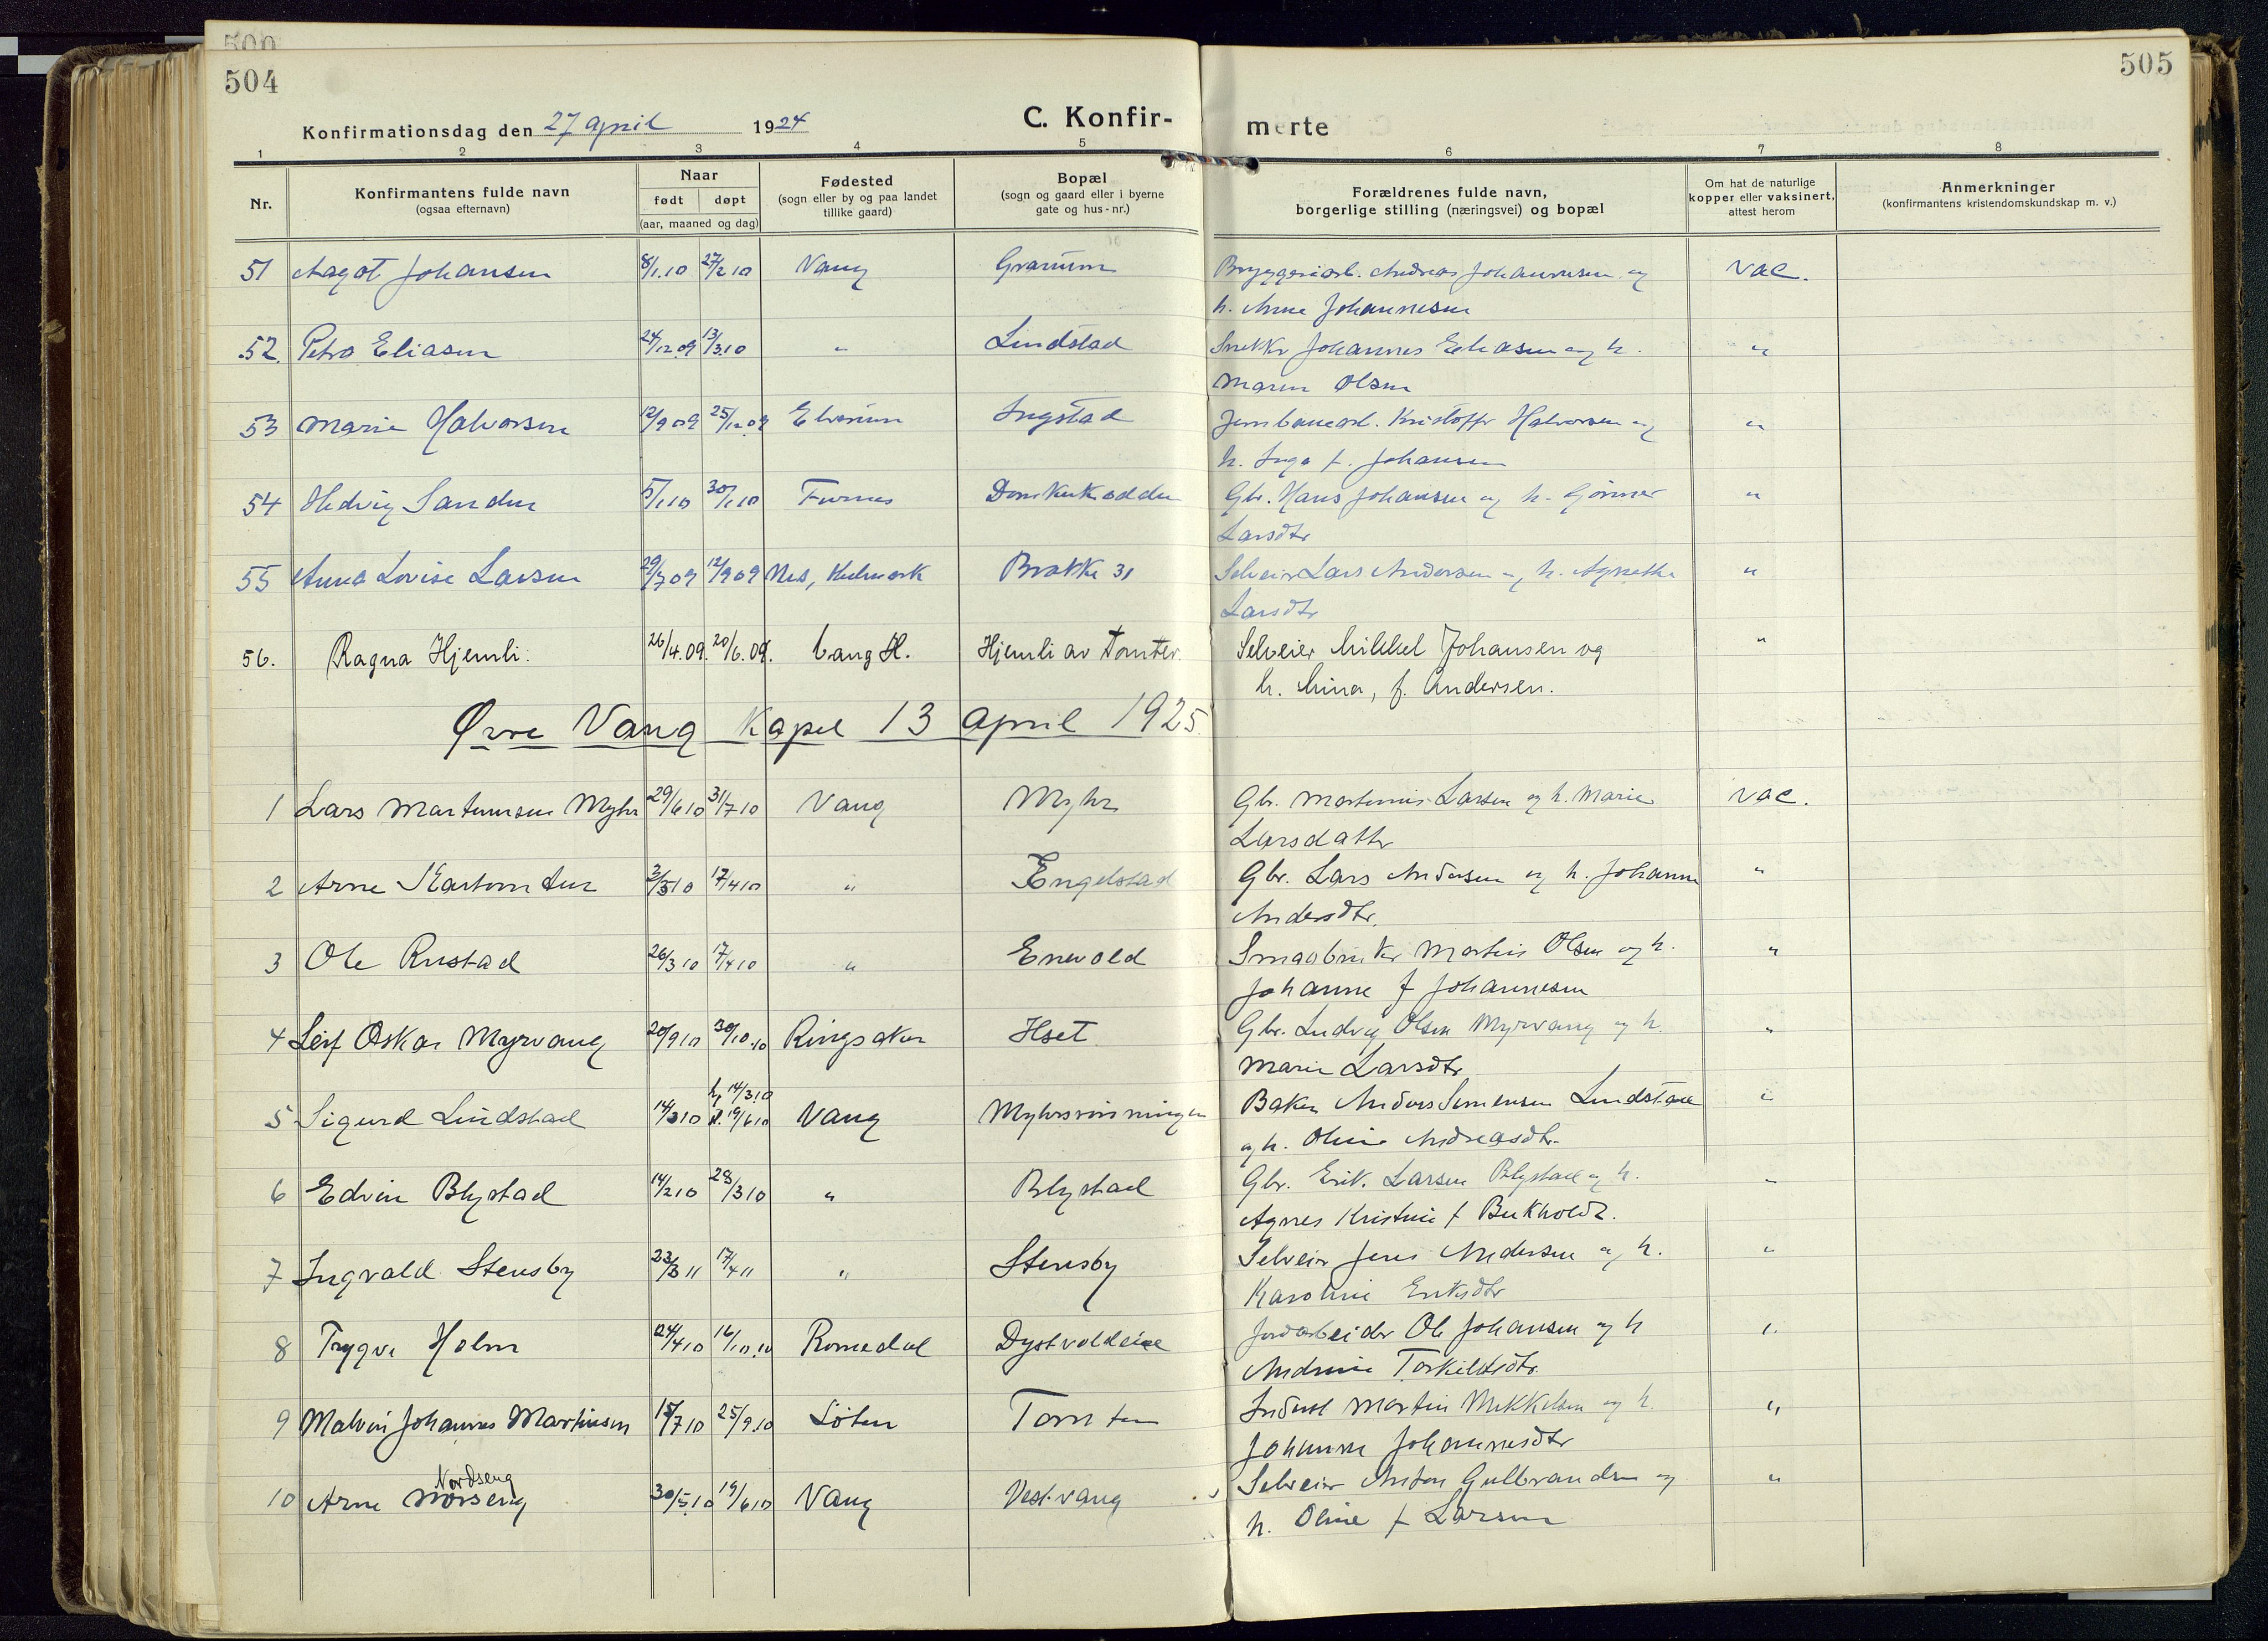 500
504
505
Konfirmationsdag den 27 april 1924
C. Konfir-
merte
1 2 3 4 5 6 7 8
Nr.
Konfirmantens fulde navn
(ogsaa efternavn)
Naar
født døpt
(aar, maaned og dag)
Fødested
(sogn eller by og paa landet
tillike gaard)
Bopæl
(sogn og gaard eller i byerne
gate og hus-nr.)
Forældrenes fulde navn,
borgerlige stilling (næringsvei) og bopæl
Om hat de naturlige
kopper eller vaksinert,
attest herom
Anmerkninger
(konfirmantens kristendomskundskap m. v.)
51 Aagot Johansen 8/1.10 27/2 10 Vang Granum Bryggeriarb. Andreas Johannesen og vac.
h. Anne Johannesen
52. Petra Eliasen 24/12.09 13/3.10 " Lindstad Snekker Johannes Eliasen og h. "
Maren Olsen
53 Marie Halvorsen 12/9 09 25/12.09 Elverum Ingstad Jernbanearb. Kristoffer Halvorsen og "
h. Inga f. Johansen
54 Hedvig Sanden 5/1 10 30/1 10 Furnes Gbr. Hans Johansen og h. Gjønner "
Larsdtr
55 Anna Lovise Larsen 29/7 09 12/9 09 Nes, Hedmark Brakke 31 Selveier Lars Andersen og h. Agnethe "
Larsdtr
56. Ragna Hjemli. 26/4.09. 20/6.09. Vang H. Hjemli av Tomter. Selveier Mikkel Johansen og "
h. Mina, f. Andersen.
Øvre Vang Kapel 13 april 1925.
1 Lars Martinusen Myhr 29/6 10 31/7 10 Vang Myhr Gbr. Martinus Larsen og h. Marie vac.
Larsdatter
2 Arne 3/3 10 17/4 10 " Engelstad Gbr. Lars Andersen og h. Johanne "
Andersdtr.
3 Ole Rustad 26/3 10 17/4 10 " Enevold Smaabruker Martin Olsen og h. "
Johanne f Johannesen
4 Leif Oskar Myrvang 20/9 10 30/10.10 Ringsaker Hset Gbr. Ludvig Olsen Myrvang og h. "
Marie Larsdtr
5 Sigurd Lindstad 14/3 10 hj 14/3.10 d. 19/6 10 Vang Myhrsrønningen Baker Anders Simensen Lindstad "
og h. Oline Andreasdtr.
6 Edvin Blystad 14/2 10 28/3 10 " Blystad Gbr. Erik Larsen Blystad og h. "
Agnes Kristine f
7 Ingvald Stensby 23/3 11 17/4 11 " Stensby Selveier Jens Andersen og h. "
Karoline Eriksdtr
8 Trygve Holm 24/4 10 16/10.10 Romedal Dystvoldeie Jordarbeider Ole Johansen og h "
Andrine Torkildsdtr.
9 Malvin Johannes Martinsen 15/7 10 25/9.10 Løten Tomten Inderst Martin Mikkelsen og h. "
Johanne Johannesdtr
Nordseng
10 Arne Norseng 30/5.10 19/6 10 Vang Vestvang Selveier Anton Gulbrandsen og "
h. Oline f Larsen